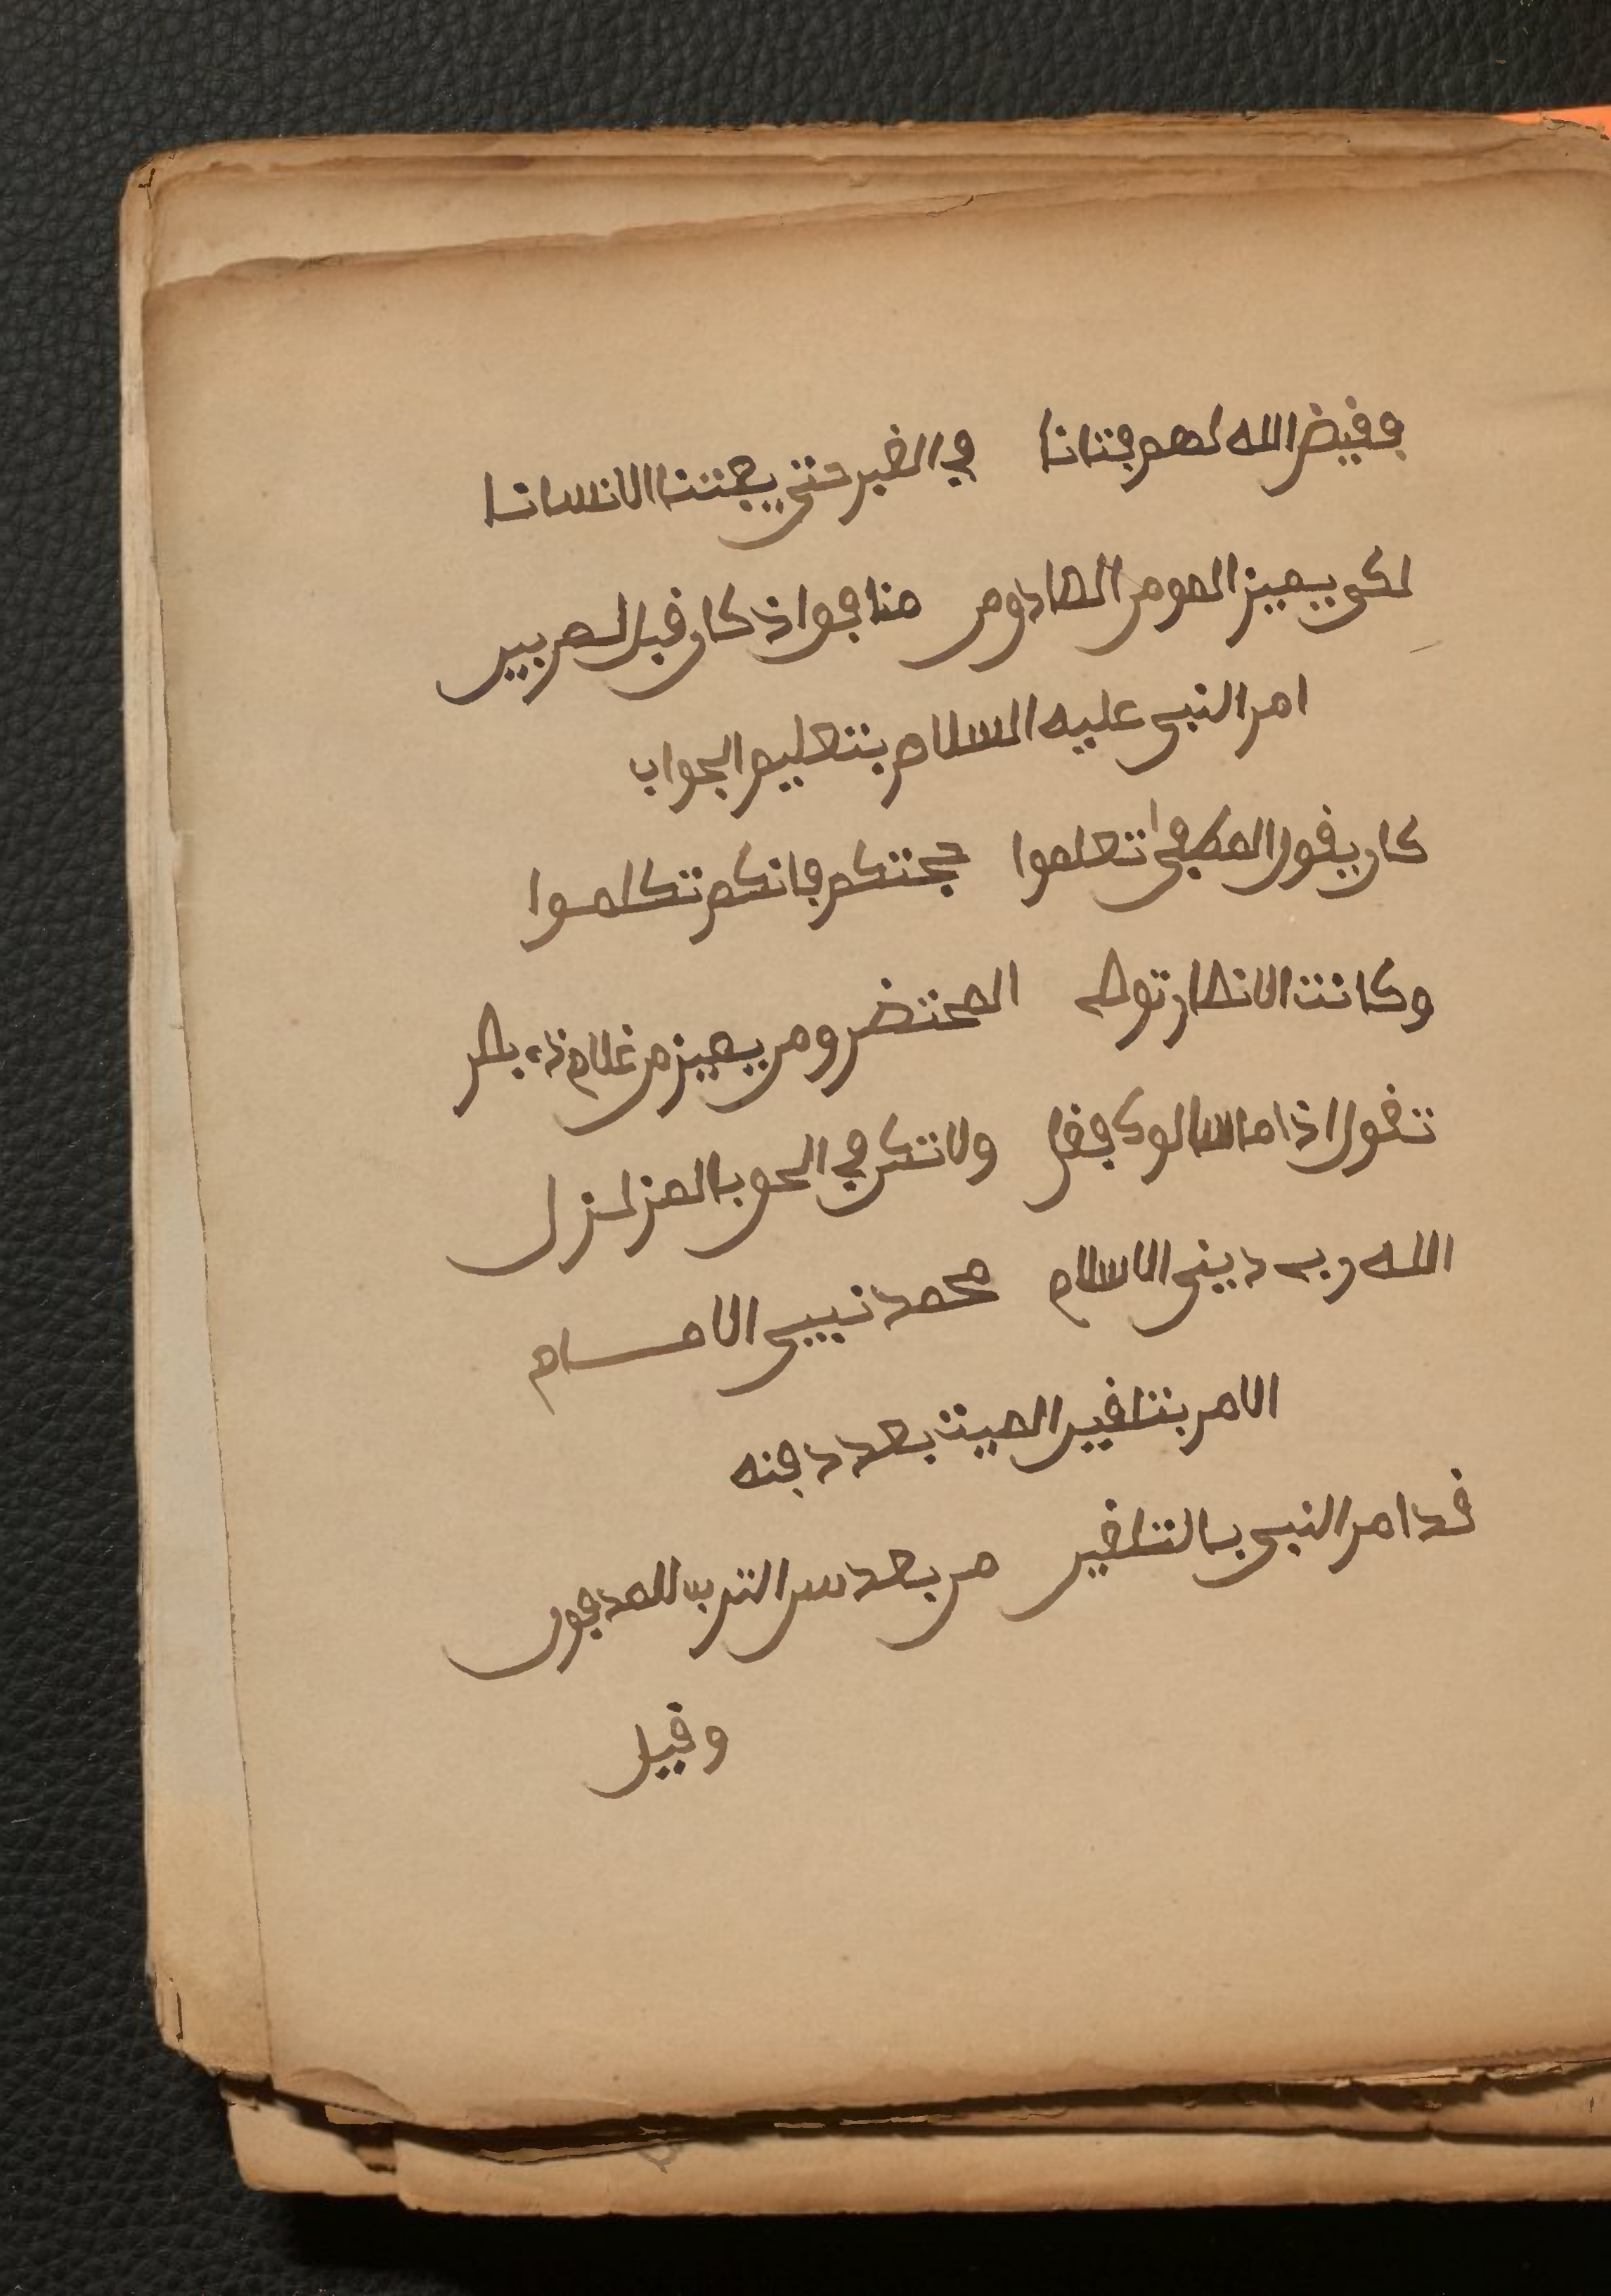 فقيض الله لهم فتانا في القبر حتى يفتننا الانسانا
لكي يميز المومن الصادق من منافق اذ كان قبل لم يبن
امر النبي عليه السلام بتعليم الجواب
كان يقول المصطفى تعلموا حجتكم فانكم تكلموا
وكانت الانصار توص المحتضر ومن يميز من غلام ذي بصر
تقول اذا ما سالوك فقل ولا تكن في الحق بالمزلزل
الله ربي ديني الاسلام محمد نبيي الامام
الامر بتلقين الميت بعد دفنه
قد امر النبي بالتلقين من بعد سن الترب للمدفون
وقيل